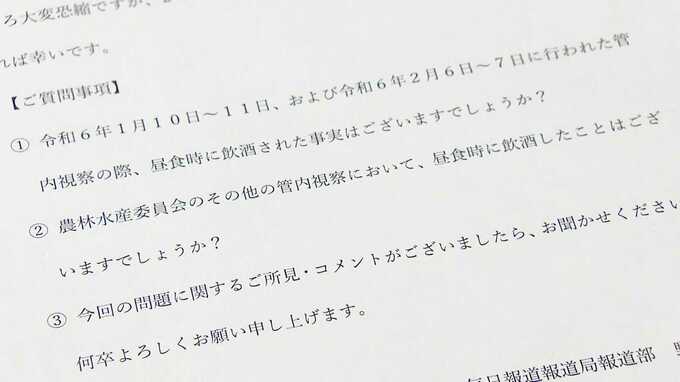 ろ大変恐縮ですが、
れば幸いです。
【ご質問事項】
① 令和６年１月１０日～１１日、および令和６年２月６日～７日に行われた管
内視察の際、昼食時に飲酒された事実はございますでしょうか？
② 農林水産委員会のその他の管内視察において、昼食時に飲酒したことはござ
いますでしょうか？
③ 今回の問題に関するご所見・コメントがございましたら、お聞かせください
何卒よろしくお願い申し上げます。
毎日報道報道局報道部